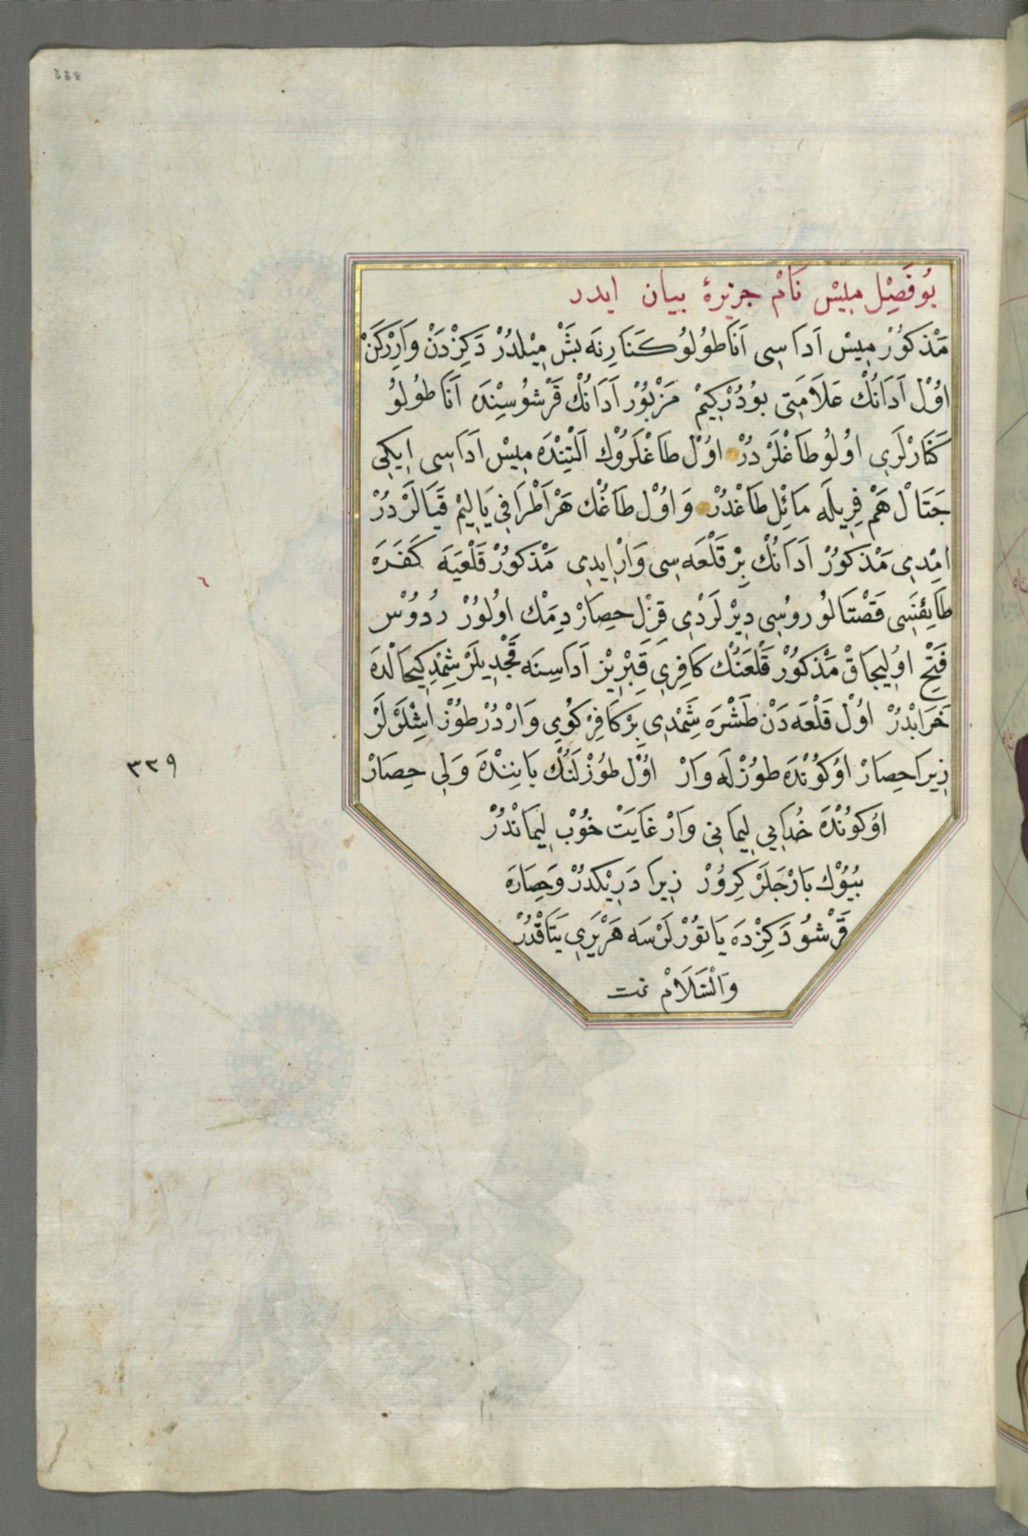 بُو فَصِلْ مِيسْ نَامْ جزيرۀ بيان ايدر
مَذْكُورْ مِيسْ اَدَاسِى اَنَاطُولُو كَنَارِنَه بَشْ مِيلْدُرْ دَكِزْدَنْ وَارِرْكَنْ
اوُلْ اَدَانُكْ عَلَامَتِى بوُدُرْكِيمْ مَزْبُورْ اَدَانُكْ قَرْشُوسِنْدَه اَنَاطُولُو
كَنَارْلَرِى اوُلُو طَاغْلَرْدُرْ اوُلْ طَاغْلَرُوكْ اَلْتِنْدَه مِيسْ اَدَاسِى اِيكِى
جَتَالْ هَمْ فِرِيلَه مَائِلْ طَاغْدُرْ وَاوُلْ طَاغُكْ هَرْ اَطْرَافِى يَالِيمْ قَيَالَرْدُرْ
اِمْدِى مَذْكُورْ اَدَانُكْ بِرْ قَلْعَه سِى وَارْ اِيدِى مَذْكُورْ قَلْعَيَه كَفَرَه
طَايِفَسِى قَصْتَالُو رُوسِى دِيرْلَرْدِى قِزِلْ حِصَارْ دِمَكْ اوُلُورْ رُدُوسْ
فَتْحْ اوُلِيجَاقْ مَذْكُورْ قَلْعَنُكْ كَافِرِى قِبْرِيزْ اَدَاسِنَه قَجْدِيلَرْ شِمْدِكِيحَالْدَه
خَرَابْدُرْ اوُلْ قَلْعَه دَنْ طَشْرَه شِمْدِى بِرْ كَافِرْ كُويِى وَارْدُرْ طُوزْ اِشْلَرْلَرْ
زِيرَا حِصَارْ اوُكُونْدَه طوُزْلَه وَارْ اوُلْ طوُزْلَنُكْ يَانِنْدَه وَلِى حِصَارْ
اوُكُونْدَه خُدَايِى لِيمَانِى وَارْ غَايَتْ خُوبْ لِيمَانْدُرْ
بُيُوكْ بَارْجَلَرْ كِرُورْ زِيرَا دَرِيْكدُرْ وَحِصَارَه
قَرْشُو دَكِزْدَه يَاتُورْلَرْسَه هَرْ يَرِى يَتَاقْدُرْ
وَالسَّلَامْ تمت
٣٢٩